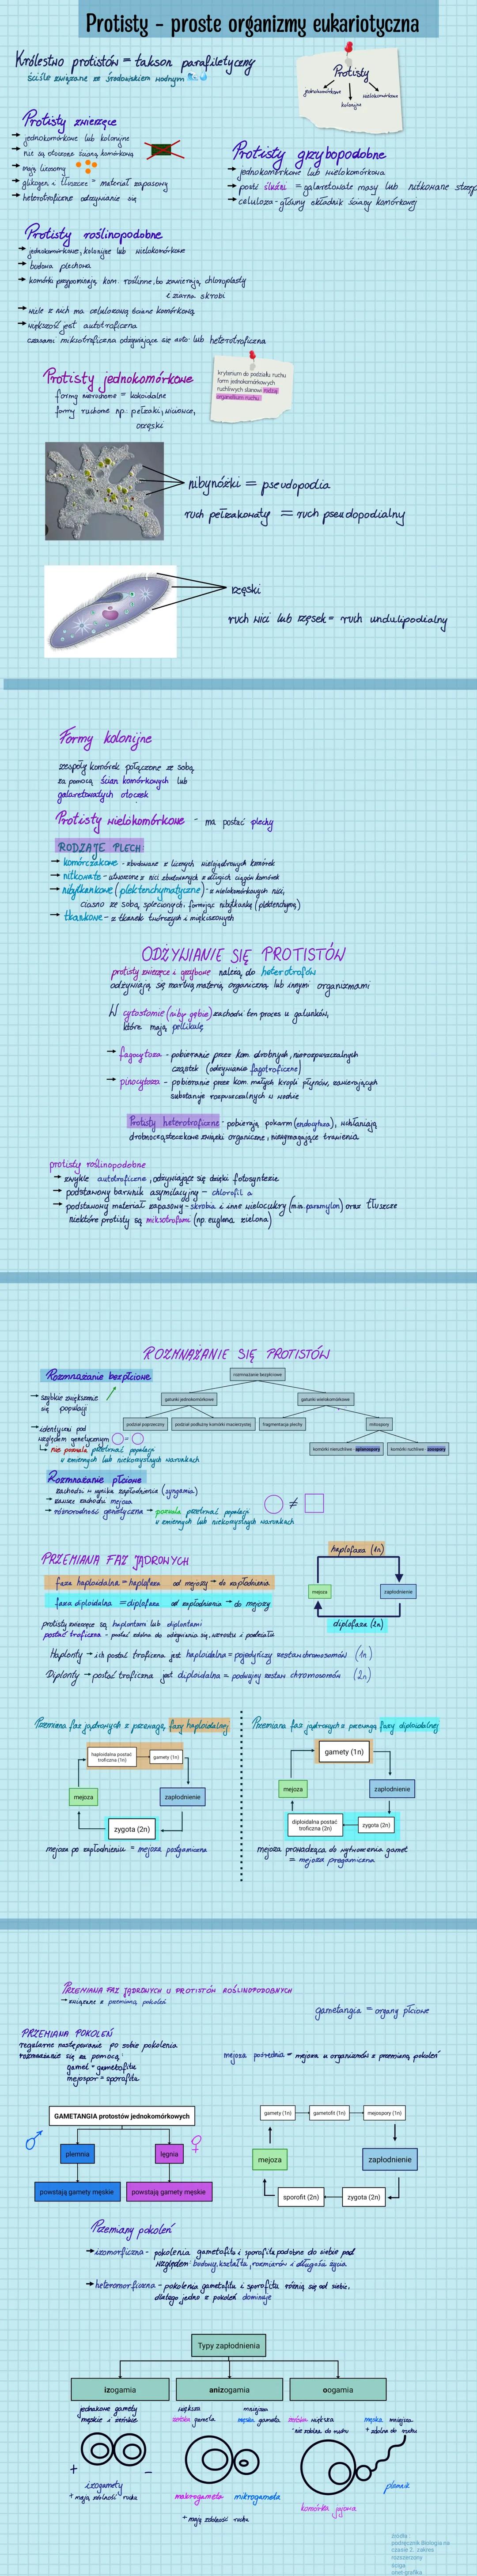 Protisty - proste organizmy eukariotyczna
Królestwo protistów = takson parafiletyczny
ściśle związane ze środowiskiem wodnym
Protisty
jednokomórkowe
wielokomórkowe
kolonijne
Protisty zwierzęce
→ jednokomórkowe lub kolonijne
→ nie są otoczone ścianą komórkową
→ mają lizosomy
→ glikogen i tłuszcze = materiał zapasowy
→ heterotroficzne odżywianie się
Protisty grzybopodobne
→ jednokomórkowe lub wielokomórkowe
→ postć śluźni = galaretowate masy lub nitkowane strzęp
→ celuloza - główny składnik ściany komórkowej
Protisty roślinopodobne
→ jednokomórkowe, kolonijne lub wielokomórkowe
→ budowa plechowa
→ komórki przypominają kom. roślinne, bo zawierają chloroplasty
i ziarna skrobi
→ wiele z nich ma celulozową ścianę komórkową
→ większość jest autotroficzna
czasami miksotroficzna odżywiające się auto lub heterotroficzna
Protisty jednokomórkowe
formy nieruchome = kokoidalne
formy ruchome np. pełzaki, wiciowce,
orzęski
kryterium do podziału ruchu
form jednokomórkowych
ruchliwych stanowi rodzaj
organellum ruchu.
nibynóżki = pseudopodia
ruch pełzakowaty = ruch pseudopodialny
rzęski
ruch wici lub rzęsek = ruch undulipodialny
Formy kolonijne
zespoły komórek połączone ze sobą
za pomocą ścian komórkowych lub
galaretowatych otoczek
Protisty wielokomórkowe - ma postać plechy
RODZAJE PLECH
→ komórczakowe - zbudowane z licznych wielojądrowych komórek
→ nitkowate - utworzone z nici zbudowanych z długich ciągów komórek
→ nibytkankowe (plektenchymatyczne) - z wielokomórkowych nici,
ciasno ze sobą splecionych, formując nibytkankę (plektenchymę)
→ tkankowe - z tkanek twórczych i miękiszowych
ODŻYWIANIE SIĘ PROTISTÓW
protisty zwierzęce i grzybowe należą do heterotrofów
odżywiają się martwą materią organiczną lub innymi organizmami
W cytostomie (niby gębie) zachodzi ten proces u gatunków,
które mają pellikulę
→ fagocytoza - pobieranie przez kom. drobnych, nierozpuszczalnych
cząstek (odżywianie fagotroficzne)
→ pinocytoza - pobieranie przez kom. małych kropli płynów, zawierających
substancje rozpuszczalnych w wodzie
Protisty heterotroficzne - pobierają pokarm (endocytoza), wchłaniają
drobnocząsteczkowe związki organiczne, niewymagające trawienia.
protisty roślinopodobne
→ zwykle autotroficzne, odżywiające się dzięki fotosyntezie
→ podstawowy barwnik asymilacyjny - chlorofil a
→ podstawowy materiał zapasowy - skrobia i inne wielocukry (min. paramylon) oraz tłuszcze
niektóre protisty są miksotrofami (np. euglena zielona)
ROZMNAŻANIE SIĘ PROTISTÓW
Rozmnażanie bezpłciowe
→ szybkie zwiększenie
się populacji
→ identyczni pod
względem genetycznym =
↳ nie pozwala przetrwać populacji
w zmiennych lub niekorzystnych warunkach
rozmnażanie bezpłciowe
gatunki jednokomórkowe
gatunki wielokomórkowe
podział poprzeczny
podział podłużny komórki macierzystej
fragmentacja plechy
mitospory
komórki nieruchliwe - aplanospory
komórki ruchliwe - zoospory
Rozmnażanie płciowe
zachodzi w wyniku zapłodnienia (syngamia)
→ zawsze zachodzi mejoza
→ różnorodność genetyczna → pozwala przetrwać populacji
w zmiennych lub niekorzystnych warunkach
≠
PRZEMIANA FAZ JĄDROWYCH
faza haploidalna = haplofaza od mejozy → do zapłodnienia
faza diploidalna = diplofaza od zapłodnienia → do mejozy
haplofaza (1n)
mejoza
zapłodnienie
diplofaza (2n)
protisty zwierzęce są haplontami lub diplontami
postać troficzna - postać zdolna do odżywiania się, wzrostu i podziału
Haplonty → ich postać troficzna jest haploidalna = pojedynczy zestaw chromosomów (1n)
Diplonty → postać troficzna jest diploidalna = podwójny zestaw chromosomów (2n)
Przemiana faz jądrowych z przewagą fazy haploidalnej
haploidalna postać
troficzna (1n)
gamety (1n)
mejoza
zapłodnienie
zygota (2n)
mejoza po zapłodnieniu = mejoza postgamiczna
Przemiana faz jądrowych z przewagą fazy diploidalnej
gamety (1n)
mejoza
zapłodnienie
diploidalna postać
troficzna (2n)
zygota (2n)
mejoza prowadząca do wytworzenia gamet
= mejoza pregamiczna
PRZEMIANA FAZ JĄDROWYCH U PROTISTÓW ROŚLINOPODOBNYCH
→ związane z przemianą pokoleń
gametangia = organy płciowe
PRZEMIANA POKOLEŃ
regularne następowanie po sobie pokolenia
rozmnażanie się za pomocą:
gamet = gametofitu
mejospor = sporofitu
mejoza pośrednia = mejoza u organizmów z przemianą pokoleń
GAMETANGIA protostów jednokomórkowych
plemnia
lęgnia
powstają gamety męskie
powstają gamety męskie
gamety (1n)
gametofit (1n)
mejospory (1n)
mejoza
zapłodnienie
sporofit (2n)
zygota (2n)
Przemiany pokoleń
→ izomorficzna - pokolenia gametofitu i sporofitu podobne do siebie pod
względem budowy, kształtu, rozmiarów i długości życia
→ heteromorficzna - pokolenia gametofitu i sporofitu różnią się od siebie,
dlatego jedno z pokoleń dominuje
Typy zapłodnienia
izogamia
anizogamia
oogamia
jednakowe gamety
męskie i żeńskie
+ -
izogamety
+ mają zdolność ruchu
większa
żeńska gameta
mniejsza
męska gameta
makrogameta
mikrogameta
+ mają zdolność ruchu
żeńska większa
- nie zdolna do ruchu
męska mniejsza
+ zdolna do ruchu
plemnik
komórka jajowa
źródła :
podręcznik Biologia na
czasie 1. zakres
rozszerzony
ściąga
onet-grafika